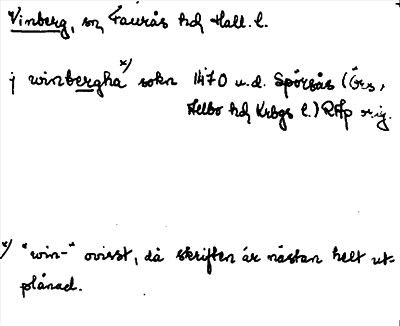 Vinberg, sn, Faurås hd, Hall. l.
x)
j winbergha sokn 1470 u.d. Spörsås (Örs,
Albo hd, Krbgs l.) RAp orig.
x) "win-" ovisst, då skriften är nästan helt ut-
plånad.